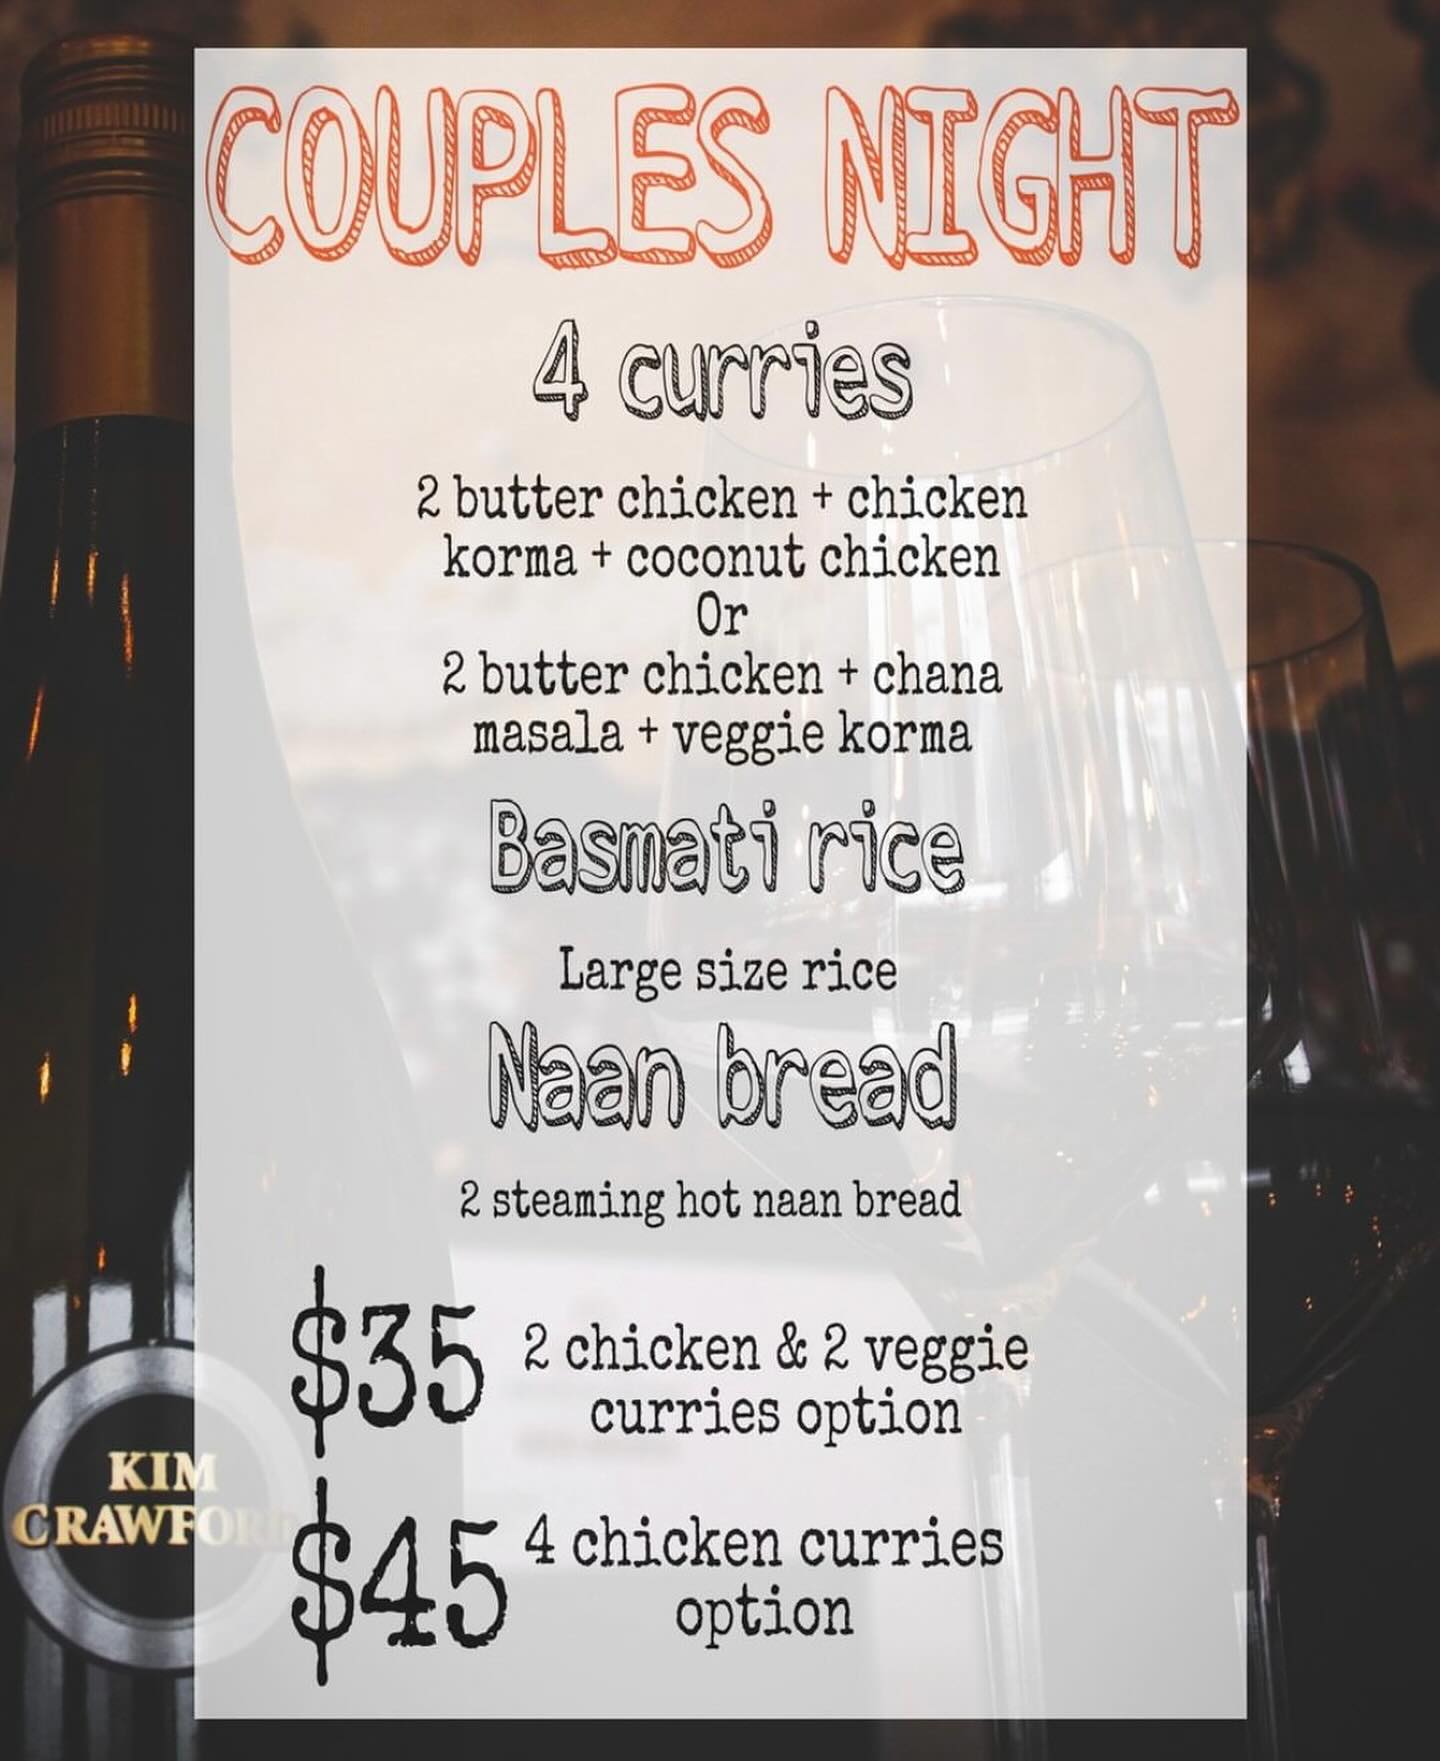 COUPLES NIGHT
4 curries
2 butter chicken + chicken
korma + coconut chicken
Or
2 butter chicken + chana
masala + veggie korma
Basmati rice
Large size rice
Naan bread
2 steaming hot naan bread
$35 2 chicken & 2 veggie
curries option
$45 4 chicken curries
option
KIM
CRAWFORD